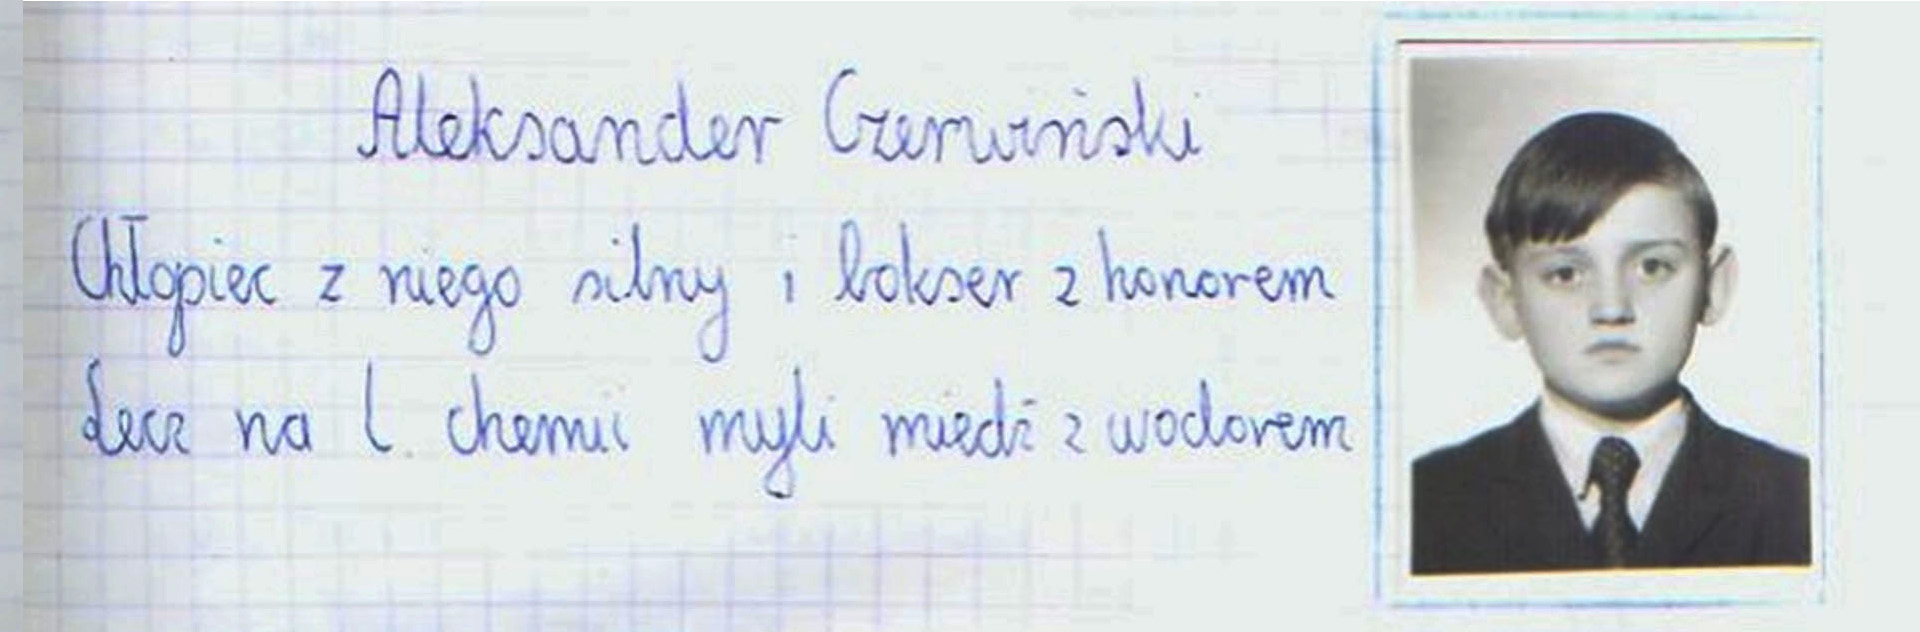 Aleksander Czerwiński
Chłopiec z niego silny i bokser z honorem
Lecz na l. chemii myli miedź z wodorem